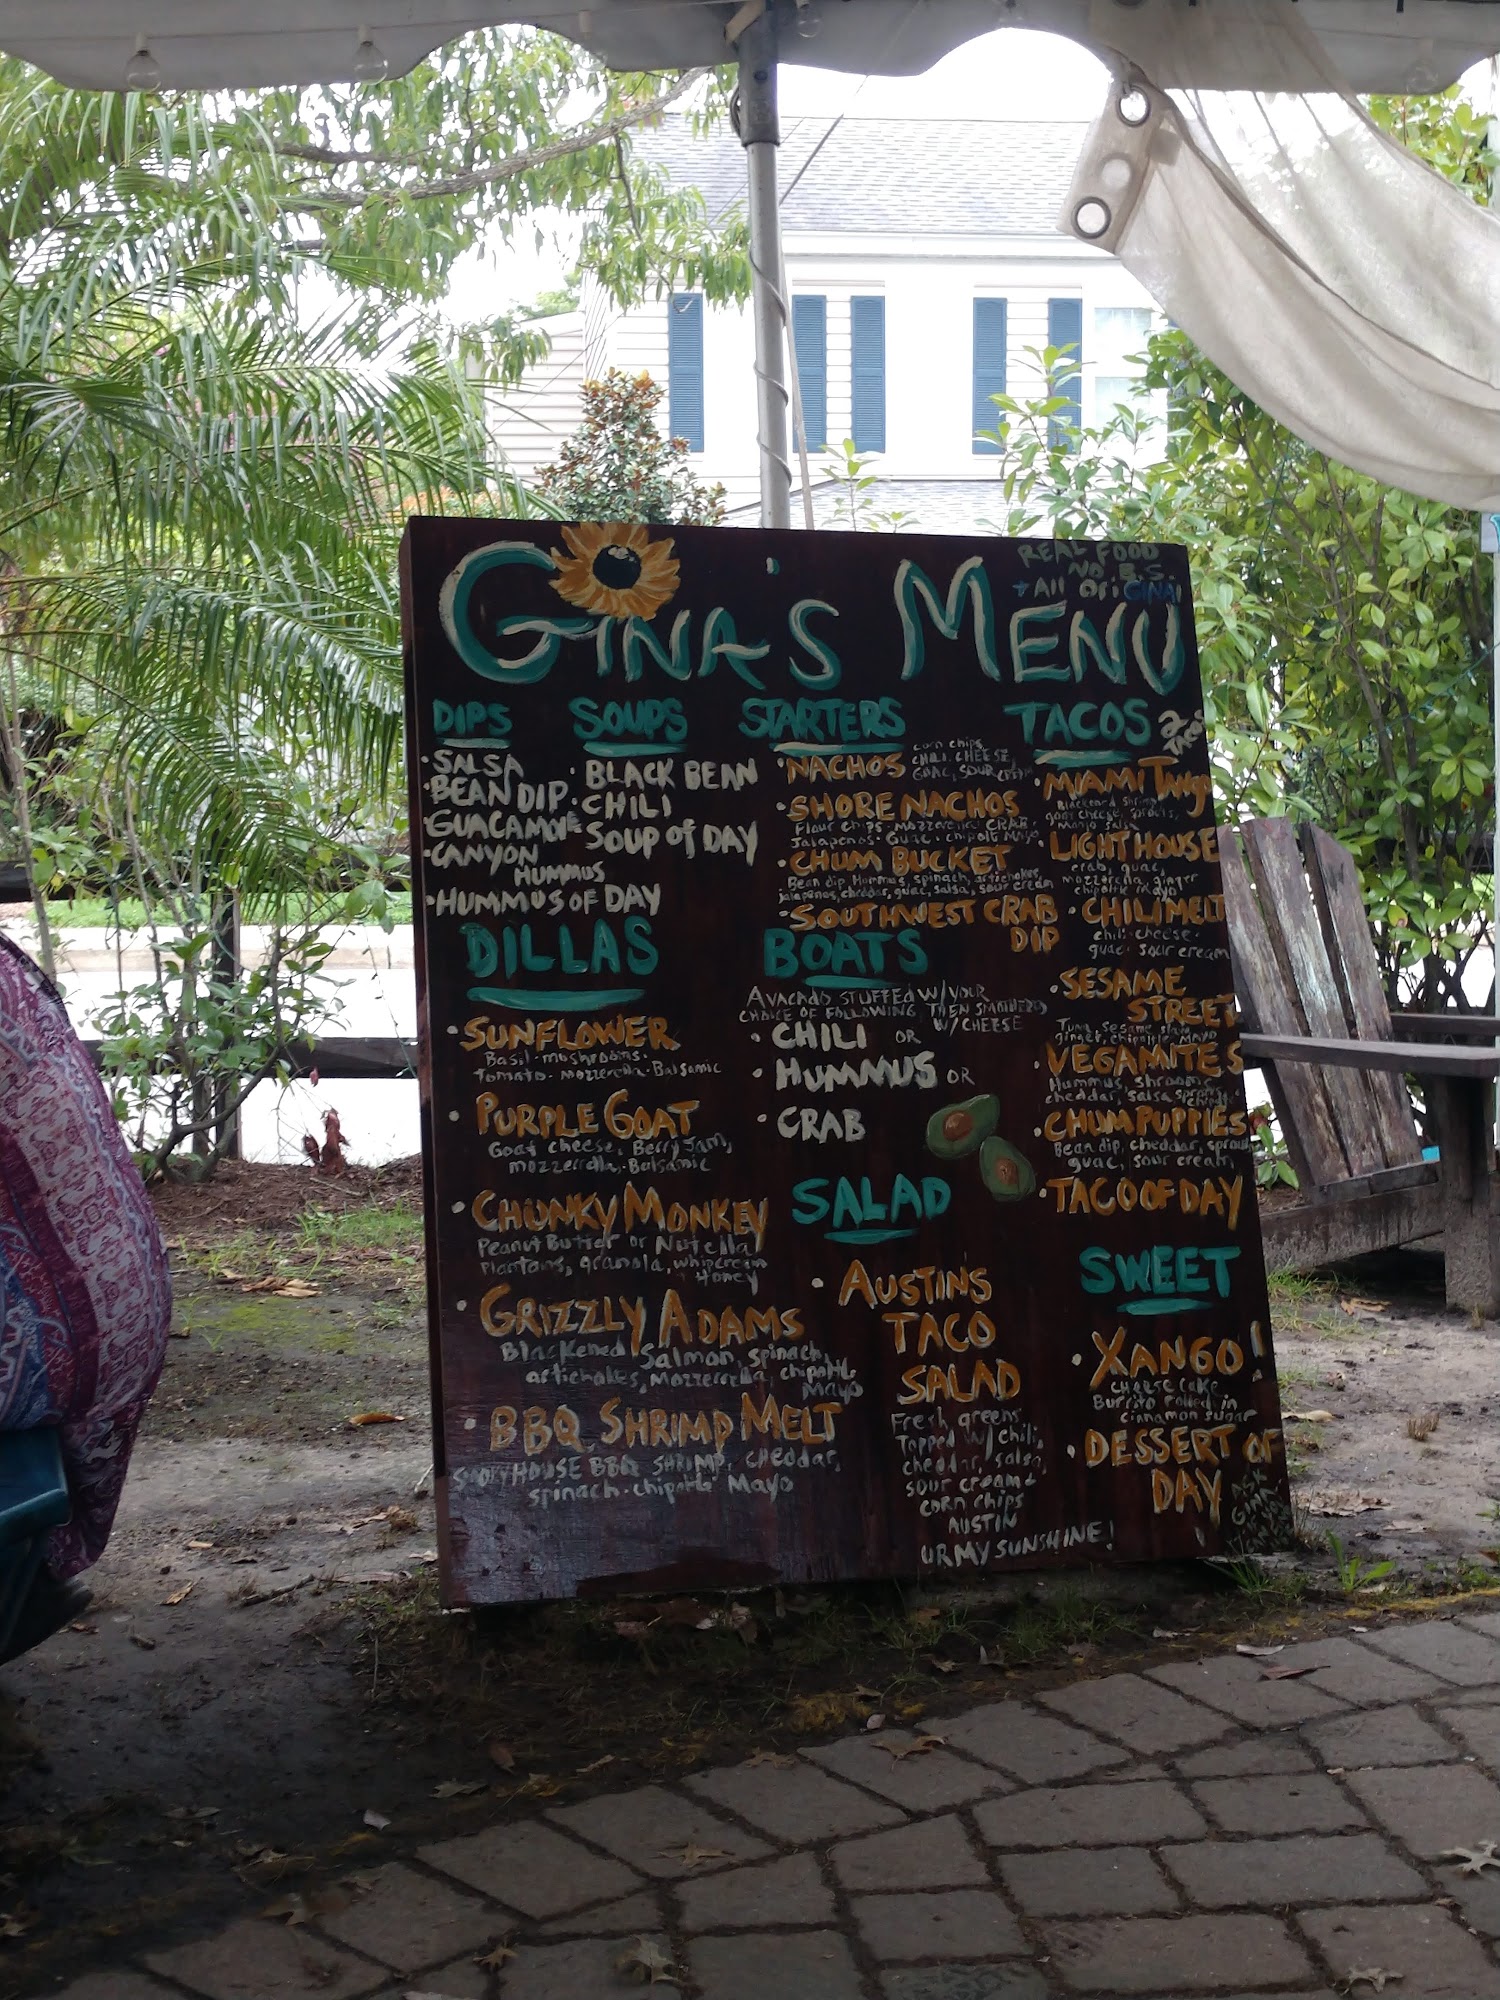 GINA'S MENU
REAL FOOD
NO B.S.
+ All OriGINAl
DIPS
• SALSA
• BEAN DIP
• GUACAMOLE
• CANYON
HUMMUS
• HUMMUS OF DAY
SOUPS
• BLACK BEAN
• CHILI
• SOUP of DAY
STARTERS
• NACHOS
corn chips,
CHILI, CHEESE,
GUAC, SOUR CREAM
• SHORE NACHOS
Flour chips, Mozzarella, CRAB,
Jalapenos, Guac, chipotle Mayo
• CHUM BUCKET
Bean dip, Hummus, spinach, artichokes,
jalapenos, cheddar, guac, salsa, sour cream
• SOUTHWEST CRAB
DIP
TACOS
2
TACOS
• MIAMI Twgs
Blackened Shrimp,
goat cheese, sprouts,
Mango salsa
• LIGHTHOUSE
crab, guac,
mozzerella, ginger
chipotle mayo
• CHILI MELT
chili-cheese-
guac-sour cream
• SESAME
STREET
Tuna, Sesame, slaw,
ginger, chipotle MAYO
• VEGAMITES
Hummus, shrooms,
cheddar, salsa,
• CHUM PUPPIES
Bean dip, cheddar, sprouts,
guac, sour cream
• TACO OF DAY
DILLAS
• SUNFLOWER
Basil-mushrooms-
Tomato-mozzerella-Balsamic
• PURPLE GOAT
Goat cheese, Berry Jam,
mozzerrella-Balsamic
• CHUNKY MONKEY
Peanut Butter or Nutella,
plantans, granola, whipcream
Honey
• GRIZZLY ADAMS
Blackened Salmon, spinach,
artichokes, Mozzerrella, chipotle
Mayo
• BBQ SHRIMP MELT
HOUSE BBQ SHRIMP, CHeddar,
spinach-chipotle Mayo
BOATS
AVACADO STUFFED W/ YOUR
CHOICE OF FOLLOWING, THEN SMOTHERED
W/ CHEESE
• CHILI OR
• HUMMUS OR
• CRAB
SALAD
• AUSTINS
TACO
SALAD
Fresh greens
Topped w/ chili,
cheddar, salsa,
sour cream &
corn chips
AUSTIN
UR MY SUNSHINE!
SWEET
• XANGO!
cheese cake
Burrito rolled in
cinnamon sugar
• DESSERT OF
DAY
ASK
GINA